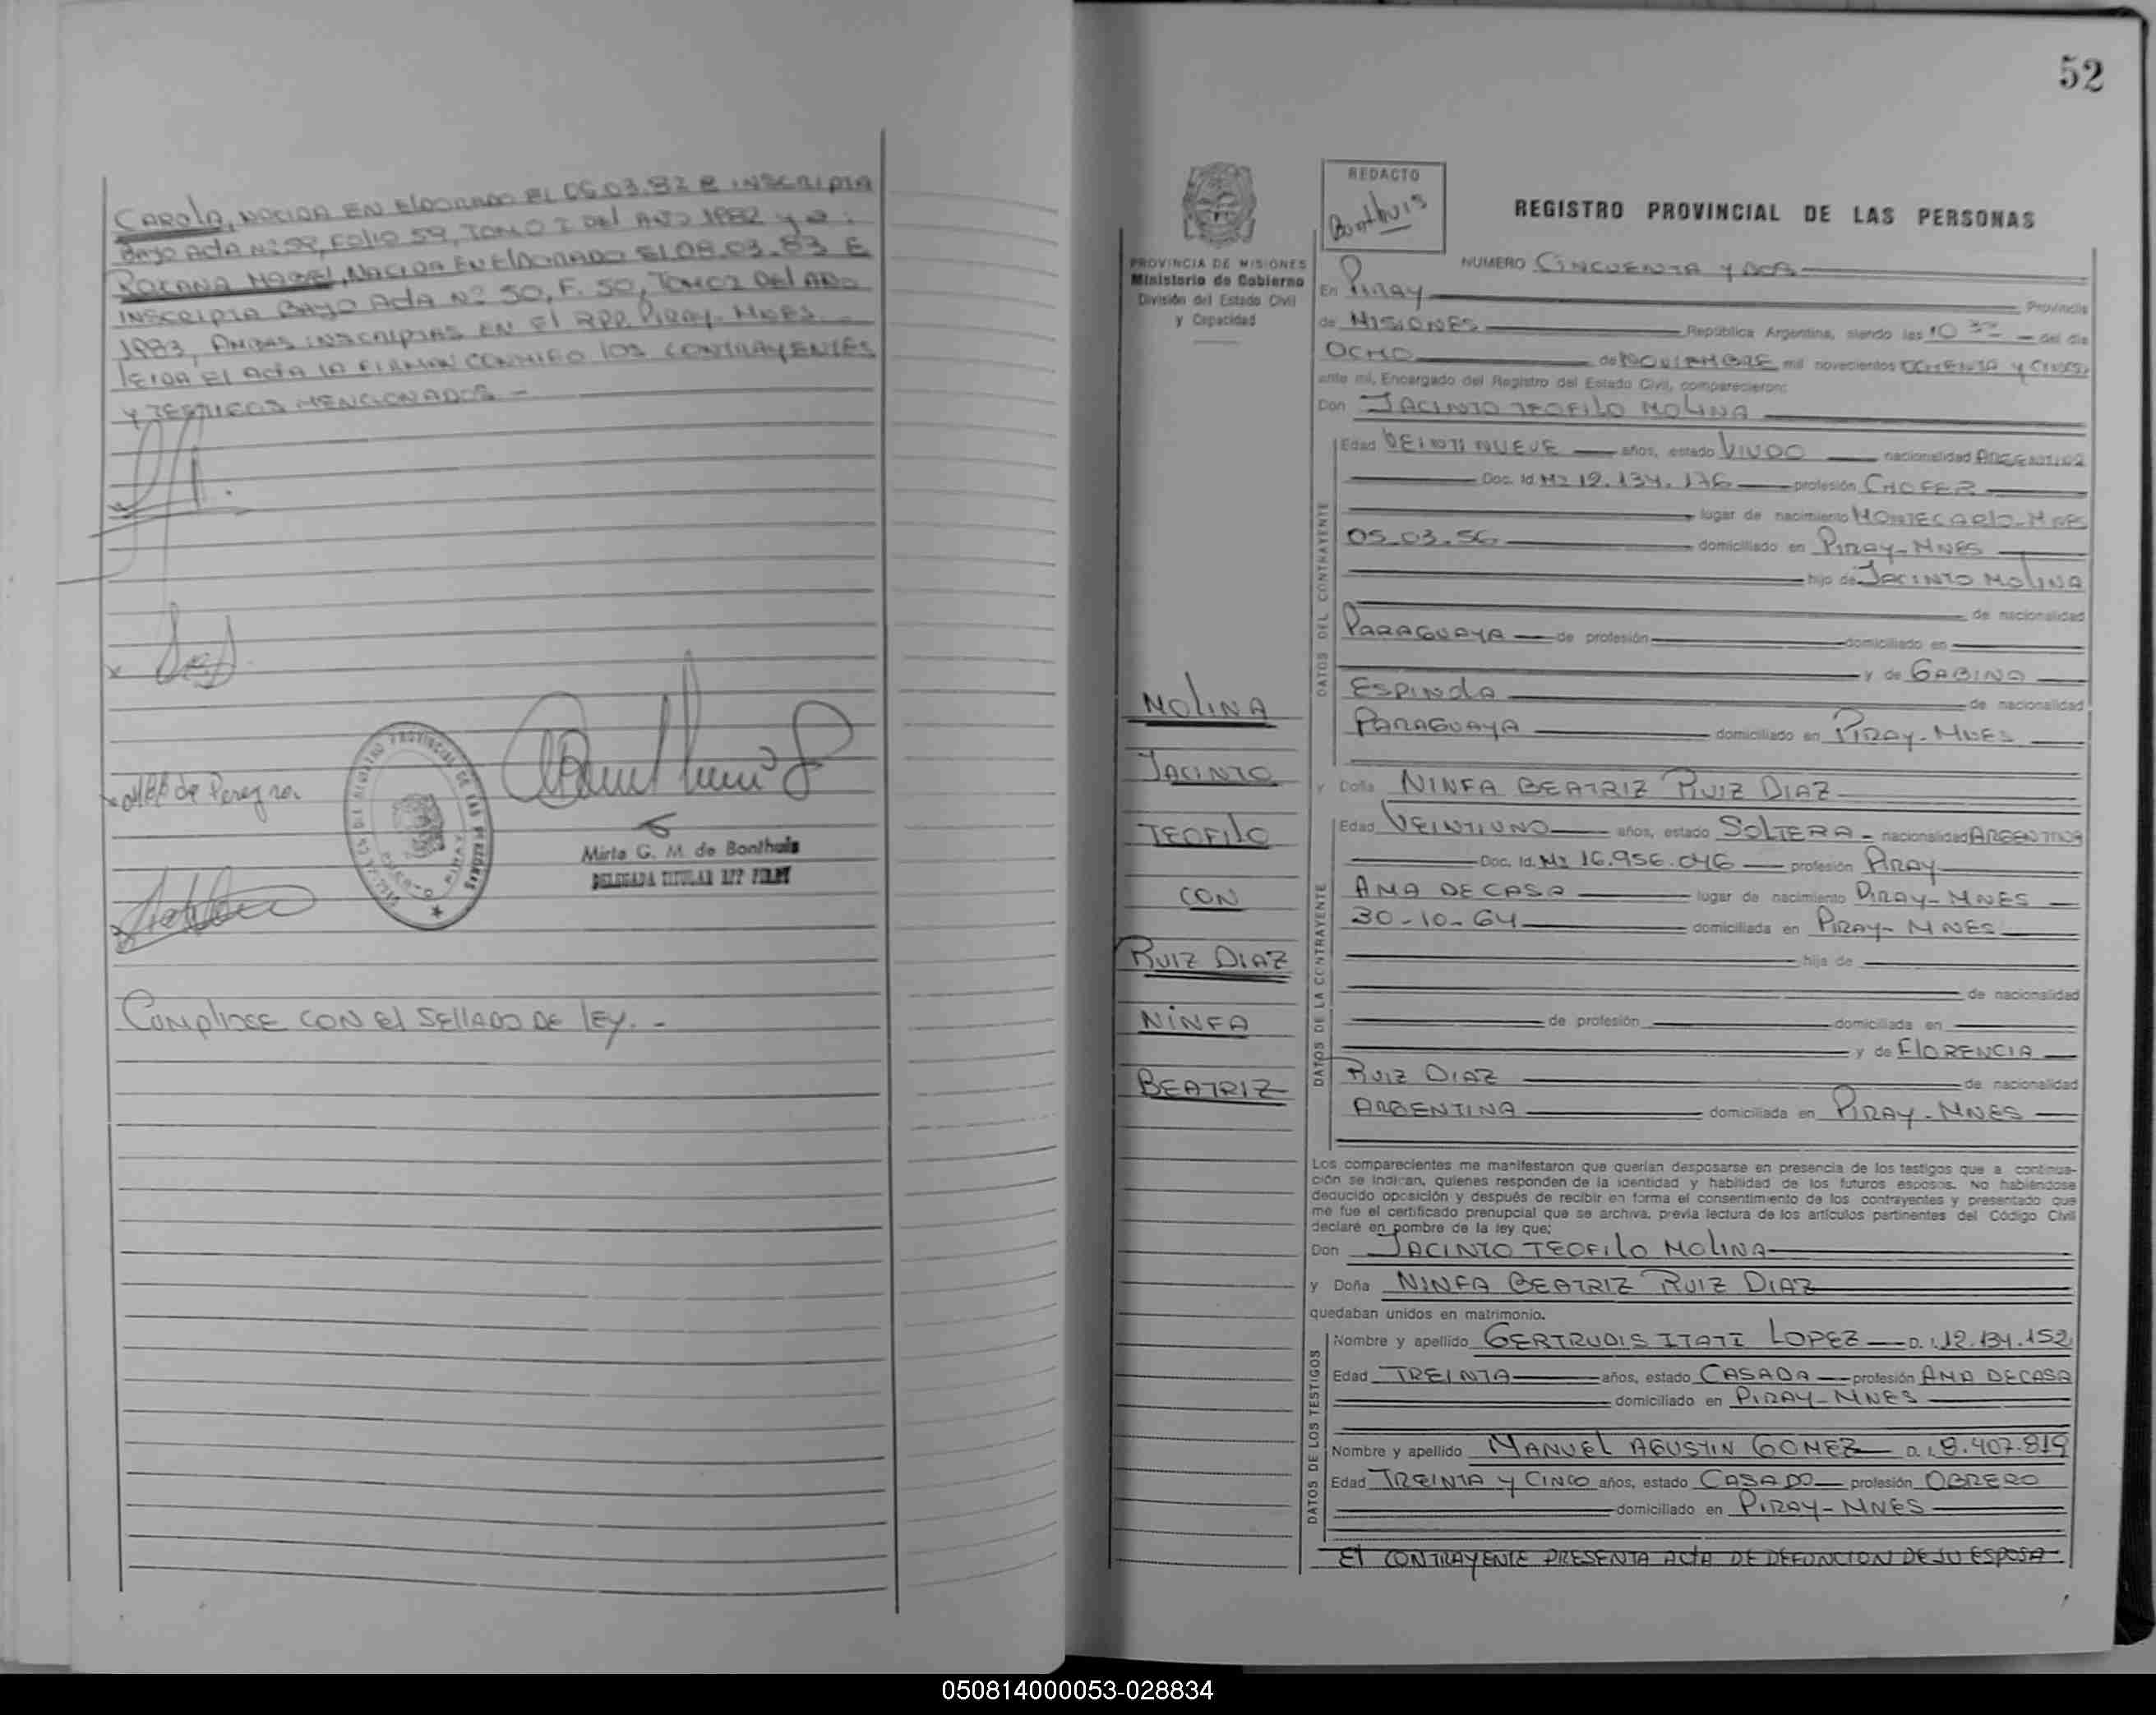 CAROLA, NACIDA EN ELDORADO EL 06.03.82 e INSCRIPTA
BAJO ACTA Nº 59, FOLIO 59, TOMO I DEL AÑO 1982 y a:
NACIDA EN ELDORADO EL 08.03.83 E
INSCRIPTA BAJO ACTA Nº 50, F. 50, DEL AÑO
1983, AMBAS INSCRIPTAS EN EL RPP PIRAY-MNES.-
LEIDA EL ACTA LA FIRMAN CONMIGO LOS CONTRAYENTES
Y TESTIGOS MENCIONADOS -
Mirta G. M. de Bonthuis
DELEGADA TITULAR RPP PIRAY
CUMPLIOSE CON EL SELLADO DE LEY. -
52
REDACTO
Bonthuis
REGISTRO PROVINCIAL DE LAS PERSONAS
PROVINCIA DE MISIONES
Ministerio de Gobierno
División del Estado Civil
y Capacidad
NUMERO CINCUENTA Y DOS
En PIRAY Provincia
de MISIONES República Argentina, siendo las 10 30 del día
OCHO de NOVIEMBRE mil novecientos OCHENTA Y CINCO
ante mí, Encargado del Registro del Estado Civil, comparecieron:
Don JACINTO TEOFILO MOLINA
DATOS DEL CONTRAYENTE
Edad VEINTINUEVE años, estado VIUDO nacionalidad ARGENTINA
Doc. Id. Nº 12.134.176 profesión CHOFER
lugar de nacimiento MONTECARLO-MNES
05-03-56 domiciliado en PIRAY-MNES
hijo de JACINTO MOLINA
de nacionalidad
PARAGUAYA de profesión domiciliado en
y de GABINA
ESPINOLA de nacionalidad
PARAGUAYA domiciliado en PIRAY-MNES
y Doña NINFA BEATRIZ RUIZ DIAZ
DATOS DE LA CONTRAYENTE
Edad VEINTIUNO años, estado SOLTERA - nacionalidad ARGENTINA
Doc. Id. Nº 16.956.046 profesión PIRAY
AMA DE CASA lugar de nacimiento PIRAY-MNES
30-10-64 domiciliada en PIRAY-MNES
hija de
de nacionalidad
de profesión domiciliada en
y de FLORENCIA
RUIZ DIAZ de nacionalidad
ARGENTINA domiciliada en PIRAY-MNES
MOLINA
JACINTO
TEOFILO
CON
RUIZ DIAZ
NINFA
BEATRIZ
Los comparecientes me manifestaron que querían desposarse en presencia de los testigos que a continua-
ción se indican, quienes responden de la identidad y habilidad de los futuros esposos. No habiéndose
deducido oposición y después de recibir en forma el consentimiento de los contrayentes y presentado que
me fue el certificado prenupcial que se archiva, previa lectura de los artículos pertinentes del Código Civil
declaré en nombre de la ley que:
Don JACINTO TEOFILO MOLINA
y Doña NINFA BEATRIZ RUIZ DIAZ
quedaban unidos en matrimonio.
DATOS DE LOS TESTIGOS
Nombre y apellido GERTRUDIS ITATI LOPEZ D.I. 12.134.152
Edad TREINTA años, estado CASADA profesión AMA DE CASA
domiciliado en PIRAY-MNES
Nombre y apellido MANUEL AGUSTIN GOMEZ D.I. 8.407.819
Edad TREINTA Y CINCO años, estado CASADO profesión OBRERO
domiciliado en PIRAY-MNES
EL CONTRAYENTE PRESENTA ACTA DE DEFUNCION DE SU ESPOSA
050814000053-028834